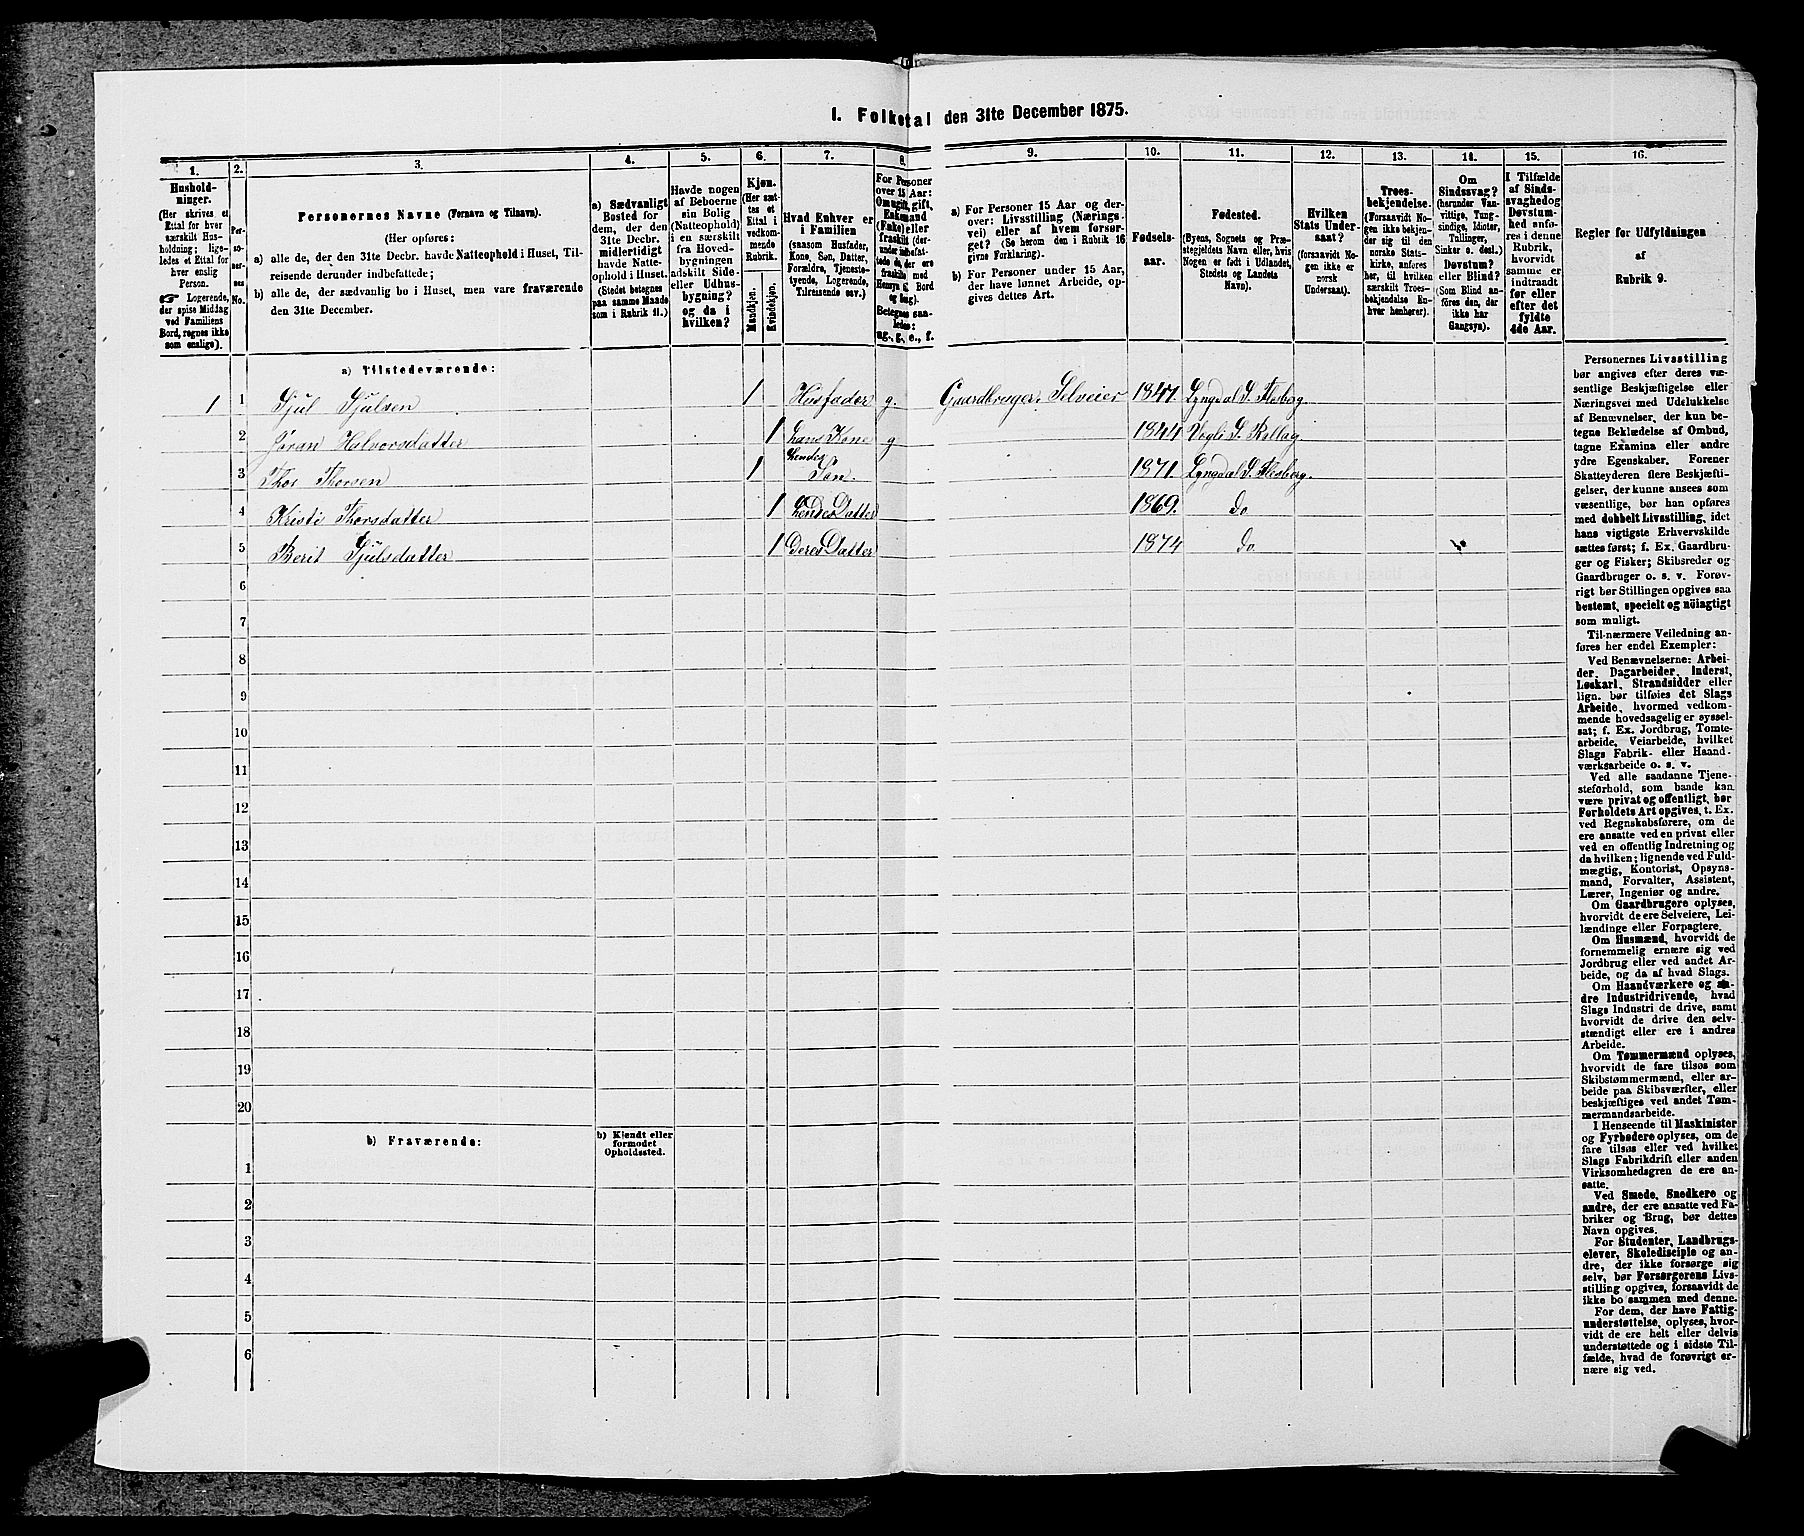 1. Folketal den 31te December 1875.
1. 2. 3. 4. 5. 6. 7. 8. 9. 10. 11. 12. 13. 14. 15. 16.
Hushold-
ninger.
(Her skrives et
Ettal for hver
særskilt Hus-
holdning; lige-
ledes et Ettal for
hver enslig
Person.
☞ Logerende,
der spise Middag
ved Familiens
Bord, regnes ikke
som enslige).
Per-
so-
ner-
nes
No.
Personernes Navne (Fornavn og Tilnavn).
(Her opføres:
a) alle de, der den 31te Decbr. havde Natteophold i Huset, Til-
reisende derunder indbefattede;
b) alle de, der sædvanlig bo i Huset, men vare fraværende
den 31te December.
a) Sædvanligt
Bosted for
dem, der den
31te Decbr.
midlertidigt
havde Natte-
ophold i Huset.
(Stedet betegnes
paa samme Maade
som i Rubrik 11.)
Havde nogen
af Beboerne
sin Bolig
(Natteophold)
i en særskilt
fra Hoved-
bygningen
adskilt Side-
eller Udhus-
bygning?
og da i
hvilken?
Kjøn.
(Her sæt-
tes et
Ettal i
vedkom-
mende
Rubrik.
Mandkjøn.
Kvindekjøn.
Hvad Enhver er
i Familien
(saasom Husfader,
Kone, Søn, Datter,
Forældre, Tjeneste-
tyende, Logerende,
Tilreisende osv.)
For Personer
over 15 Aar:
Om ugift, gift,
Enkemand
(Enke) eller
fraskilt (der-
under indbefat-
tede de, der ere
fraskilte med
Hensyn til Bord
og Seng).
Betegnes saa-
ledes:
ug., g., e., f.
a) For Personer 15 Aar og der-
over: Livsstilling (Nærings-
vei) eller af hvem forsør-
get? (Se herom den i Rubrik 16
givne Forklaring).
b) For Personer under 15 Aar,
der have lønnet Arbeide, op-
gives dettes Art.
Fødsels-
aar.
Fødested.
(Byens, Sognets og Præ-
stegjeldets Navn eller, hvis
Nogen er født i Udlandet,
Stedets og Landets
Navn).
Hvilken
Stats Under-
saat?
(forsaavidt No-
gen ikke er
norsk
Undersaat).
Troes-
bekjendelse.
(Forsaavidt No-
gen ikke bekjen-
der sig til den
norske Stats-
kirke, anføres
her, til hvilken
særskilt Troes-
bekjendelse En-
hver henhører).
Om
Sindssvag?
(herunder Van-
vittige, Tung-
sindige, Idioter,
Tullinger,
Sinker o. desl.)
Døvstum?
eller Blind?
(Som Blind an-
føres den, der
ikke har
Gangsyn).
I Tilfælde
af Sinds-
svaghed og
Døvstum-
hed anfø-
res i denne
Rubrik,
hvorvidt
samme er
indtraadt
før eller
efter det
fyldte
4de Aar.
Regler for Udfyldningen
af
Rubrik 9.
a) Tilstedeværende:
1 1 Gjul Gjulsen 1 Husfader g. Gaardbruger, Selveier 1847. Lyngdal S. Flesberg.
2 Jøran Halvorsdatter 1 hans Kone g 1844 Vegli S. Rollag
3 Thor Thorsen 1 hendes Søn. 1871. Lyngdal S. Flesberg.
4 Kristi Thorsdatter 1 hendes Datter 1869. do
5 Berit Gjulsdatter 1 deres Datter 1874 do
6
7
8
9
10
11
12
13
14
15
16
17
18
19
20
b) Fraværende:
b) Kjendt eller
formodet
Opholdssted.
1
2
3
4
5
6
Personernes Livsstilling
bør angives efter deres væ-
sentlige Beskjæftigelse eller
Næringsvei med Udelukkelse
af Benævnelser, der kun be-
tegne Beklædelse af Ombud,
tagne Examina eller andre
ydre Egenskaber. Forener
Skatteyderen flere Beskjæfti-
gelser, der kunne ansees som
væsentlige, bør han opføres
med dobbelt Livsstilling, idet
hans vigtigste Erhvervskilde
sættes først; f. Ex. Gaardbru-
ger og Fisker; Skibsreder og
Gaardbruger o. s. v. Forøv-
rigt bør Stillingen opgives saa
bestemt, specielt og nøiagtigt
som muligt.
Til nærmere Veiledning an-
føres her endel Exempler:
Ved Benævnelserne: Arbei-
der, Dagarbeider, Inderst,
Løskarl, Strandsidder eller
lign. bør tilføies det Slags
Arbeide, hvormed vedkom-
mende hovedsagelig er syssel-
sat; f. Ex. Jordbrug, Tømte-
arbeide, Veiarbeide, hvilket
Slags Fabrik- eller Haand-
værksarbeide o. s. v.
Ved alle saadanne Tjene-
steforhold, som baade kan
være privat og offentligt, bør
Forholdets Art opgives, t. Ex.
ved Regnskabsførere, om de
ere ansatte ved en privat eller
ved en offentlig Indretning og
da hvilken; lignende ved Fuld-
mægtig, Kontorist, Opsyns-
mand, Forvalter, Assistent,
Lærer, Ingeniør og andre.
Om Gaardbrugere oplyses,
hvorvidt de ere Selveiere, Lei-
lændinge eller Forpagtere.
Om Husmænd, hvorvidt de
fornemmelig ernære sig ved
Jordbrug eller ved andet Ar-
beide, og da af hvad Slags.
Om Haandværkere og an-
dre Industridrivende, hvad
Slags Industri de drive, samt
hvorvidt de drive den selv-
stændigt eller ere i andres
Arbeide.
Om Tømmermænd oplyses,
hvorvidt de fare tilsøs som
Skibstømmermænd, eller ar-
beide paa Skibsværfter, eller
beskjæftiges ved andet Tøm-
mermandsarbeide.
I Henseende til Maskinister
og Fyrbødere oplyses, om de
fare tilsøs eller ved hvilket
Slags Fabrikdrift eller anden
Virksomhedsgren de ere an-
satte.
Ved Smede, Snedkere og
andre, der ere ansatte ved Fa-
briker og Brug, bør dettes
Navn opgives.
For Studenter, Landbrugs-
elever, Skoledisciple og an-
dre, der ikke forsørge sig
selv, bør Forsørgerens Livs-
stilling opgives, forsaavidt de
ikke bo sammen med denne.
For dem, der have Fattig-
understøttelse, oplyses, hvor-
vidt de ere helt eller delvis
understøttede og i sidste Til-
fælde, hvad de forøvrigt er-
nære sig ved.